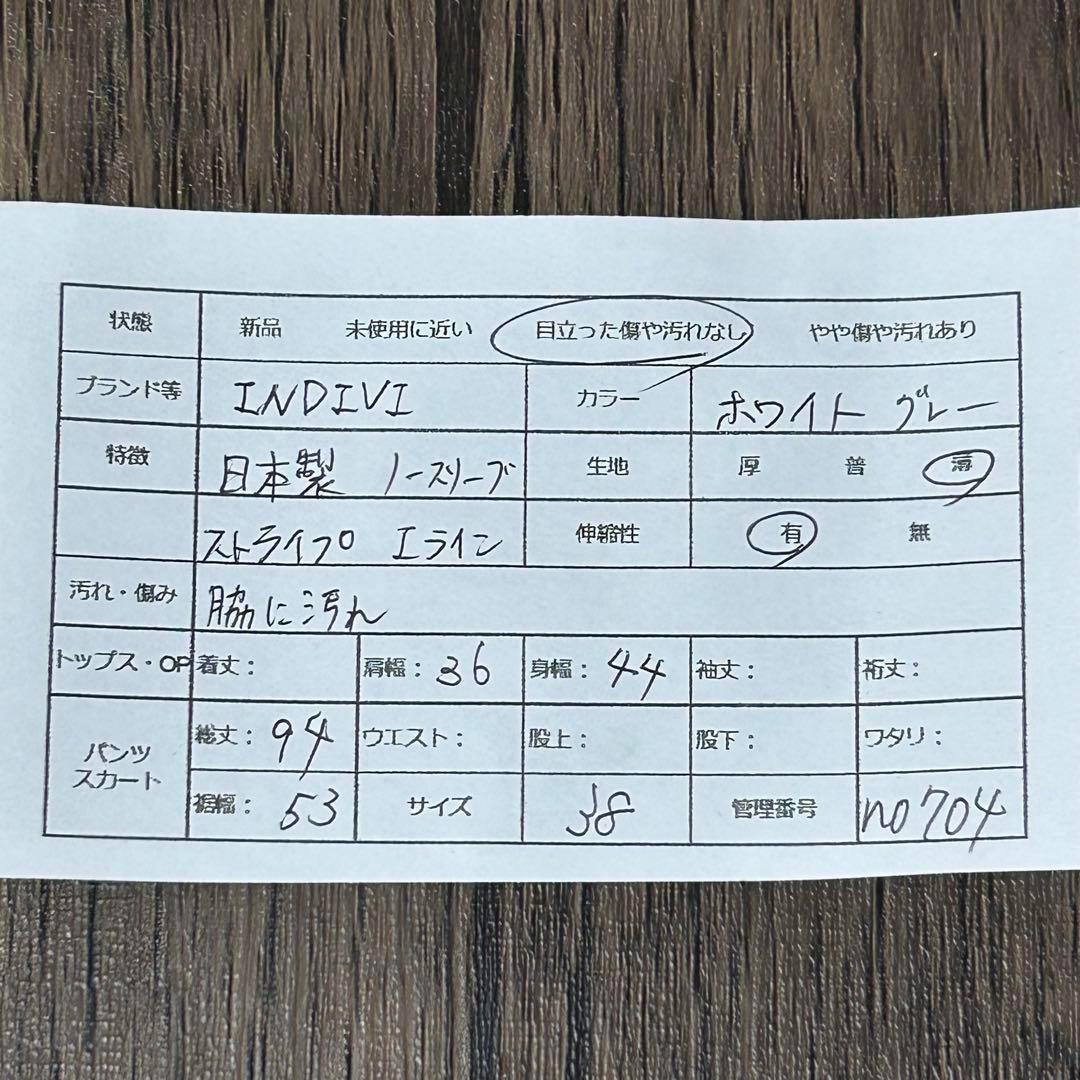 状態 新品 未使用に近い 目立った傷や汚れなし やや傷や汚れあり
ブランド等 INDIVI カラー ホワイト グレー
特徴 日本製 ノースリーブ 生地 厚 普 薄
ストライプ Iライン 伸縮性 有 無
汚れ・傷み 脇に汚れ
トップス・OP 着丈: 肩幅: 36 身幅: 44 袖丈: 裄丈:
パンツ スカート 総丈: 94 ウエスト: 股上: 股下: ワタリ:
裾幅: 53 サイズ 38 管理番号 no704